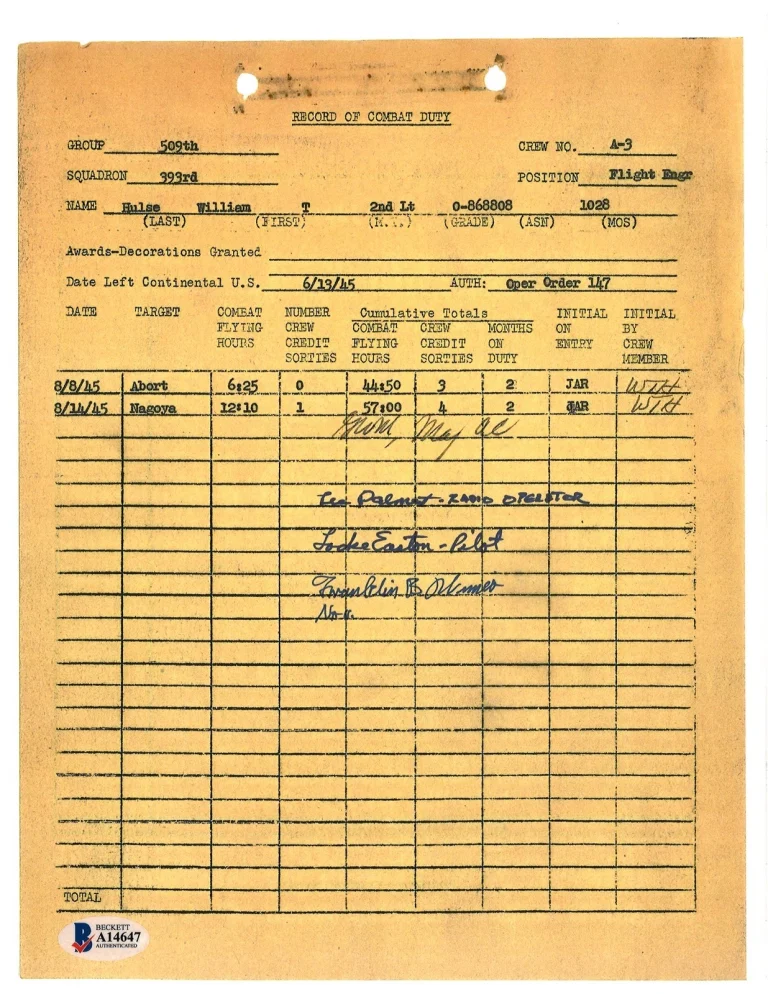 RECORD OF COMBAT DUTY
GROUP 509th CREW NO. A-3
SQUADRON 393rd POSITION Flight Engr
NAME Hulse William T 2nd Lt 0-868808 1028
(LAST) (FIRST) (M.I.) (GRADE) (ASN) (MOS)
Awards-Decorations Granted
Date Left Continental U.S. 6/13/45 AUTH: Oper Order 147
DATE TARGET COMBAT NUMBER Cumulative Totals INITIAL INITIAL
FLYING CREW COMBAT CREW MONTHS ON BY
HOURS CREDIT FLYING CREDIT ON ENTRY CREW
SORTIES HOURS SORTIES DUTY MEMBER
8/8/45 Abort 6:25 0 44:50 3 2 JAR WTH
8/14/45 Nagoya 12:10 1 57:00 4 2 JAR WTH
Maj ac
Leo Palmert - RADIO OPERATOR
Locke Easton - Pilot
Franklin B
TOTAL
BECKETT
A14647
AUTHENTICATED